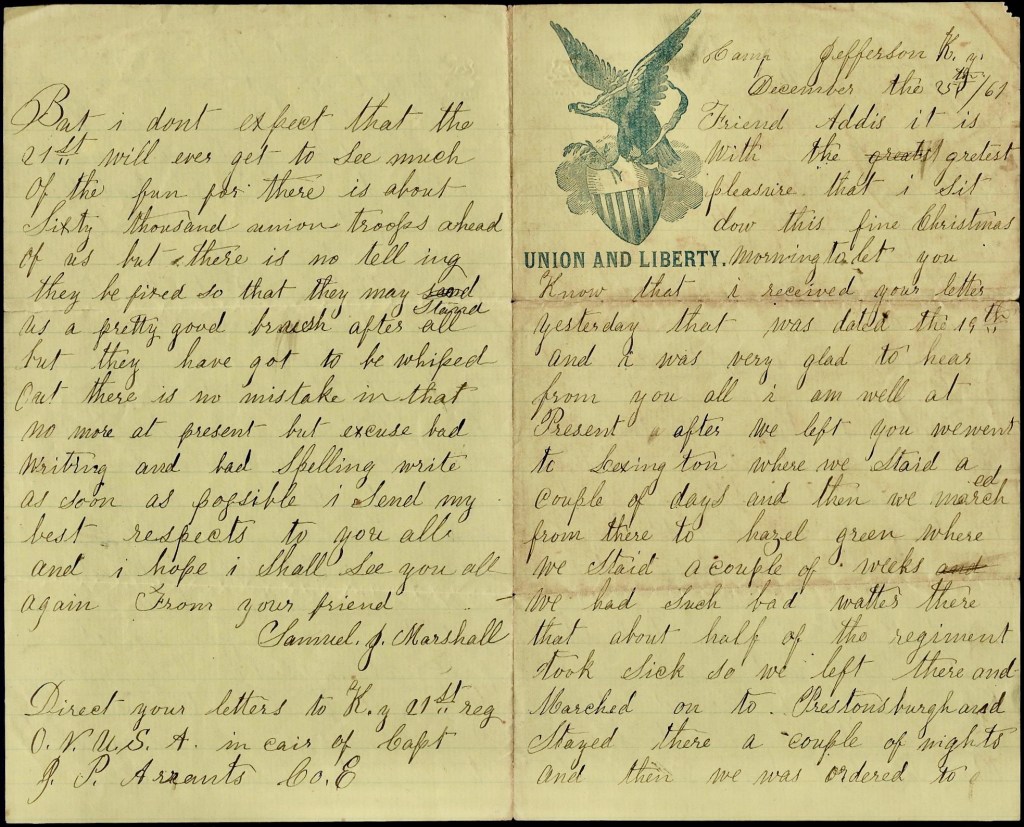 Camp Jefferson K. y.
December the 25th /61
Friend Addis it is
With the gretest
pleasure that i sit
dow this fine Christmas
UNION AND LIBERTY. morning to let you
Know that i received your letter
yesterday that was dated the 19th
and i was very glad to hear
from you all i am well at
Present after we left you we went
to Lexington where we staid a
couple of days and then we marched
from there to hazel green where
we staid a couple of weeks and
we had such bad watter there
that about half of the regiment
took sick so we left there and
Marched on to Prestonsburgh and
Stayed there a couple of nights
and then we was ordered to
But i dont expect that the
21st will ever get to see much
of the fun for there is about
Sixty thousand union troops ahead
of us but there is no telling
they be fixed so that they may Stand
us a pretty good brush after all
but they have got to be whiped
Out there is no mistake in that
no more at present but excuse bad
writing and bad Spelling write
as soon as possible i Send my
best respects to you all
and i hope i Shall See you all
again From your friend
Samuel. J. Marshall
Direct your letters to K. y 21st reg
O. V. U. S. A. in cair of Capt
J. P. Arrants Co. E